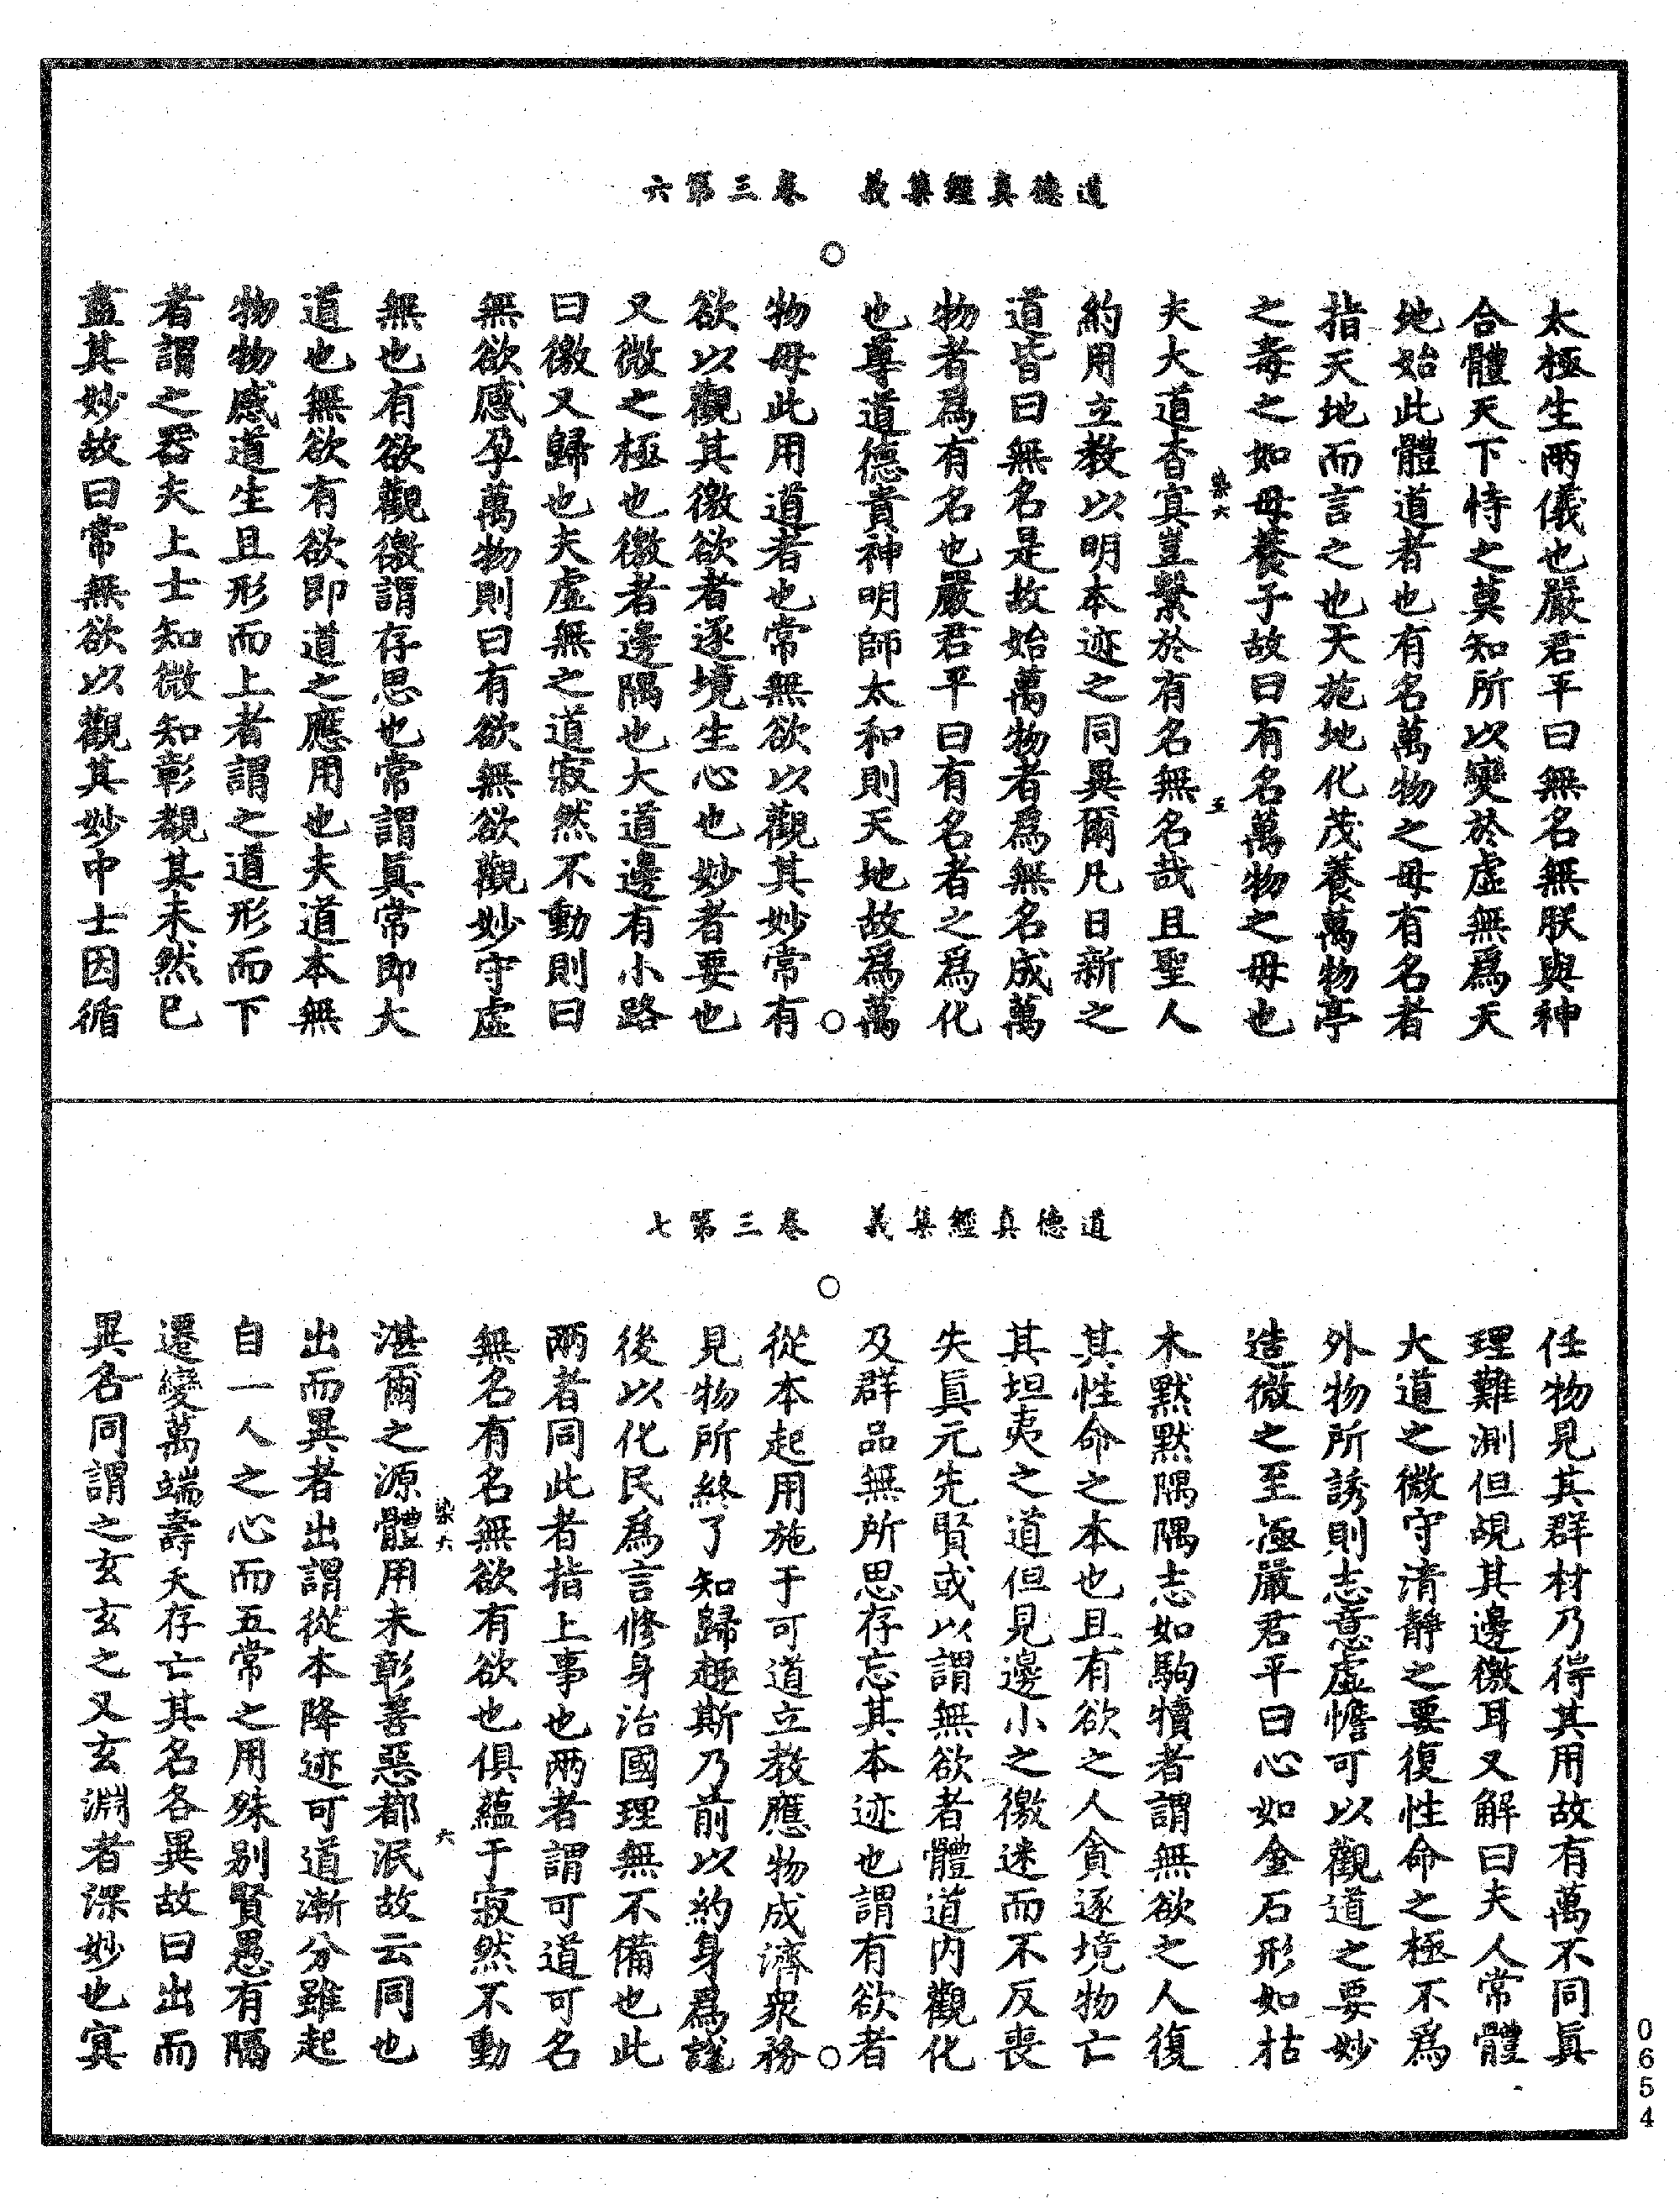 道德真經集義　卷三第六
太極生兩儀也嚴君平曰無名無朕與神
合體天下恃之莫知所以變於虛無爲天
地始此體道者也有名萬物之母有名者
指天地而言之也天施地化茂養萬物亭
之毒之如母養子故曰有名萬物之母也
染六
五
夫大道杳寘豈繫於有名無名哉且聖人
約用立教以明本迹之同異爾凡日新之
道皆曰無名是故始萬物者爲無名成萬
物者爲有名也嚴君平曰有名者之爲化
也尊道德貴神明師太和則天地故爲萬
物母此用道者也常無欲以觀其妙常有
欲以觀其徼欲者逐境生心也妙者要也
又微之極也徼者邊隅也大道邊有小路
曰徼又歸也夫虛無之道寂然不動則曰
無欲感孕萬物則曰有欲無欲觀妙守虛
無也有欲觀徼謂存思也常謂真常即大
道也無欲有欲即道之應用也夫道本無
物物感道生且形而上者謂之道形而下
者謂之器夫上士知微知彰覩其未然已
盡其妙故曰常無欲以觀其妙中士因循
道德真經集義　卷三第七
任物見其群材乃得其用故有萬不同真
理難測但覘其邊徼耳又解曰夫人常體
大道之微守清靜之要復性命之極不爲
外物所誘則志意虛憺可以觀道之要妙
造微之至極嚴君平曰心如金石形如枯
木默默隅隅志如駒犢者謂無欲之人復
其性命之本也且有欲之人貪逐境物亡
其坦夷之道但見邊小之徼迷而不反喪
失真元先賢或以謂無欲者體道内觀化
及群品無所思存忘其本迹也謂有欲者
從本起用施于可道立教應物成濟衆務
見物所終了知歸趣斯乃前以約身爲謹
後以化民爲言修身治國理無不備也此
兩者同此者指上事也兩者謂可道可名
無名有名無欲有欲也俱蘊于寂然不動
染六
六
湛爾之源體用未彰善惡都泯故云同也
出而異者出謂從本降迹可道漸分雖起
自一人之心而五常之用殊別賢愚有隔
遷變萬端壽夭存亡其名各異故曰出而
異名同謂之玄玄之又玄淵者深妙也寘
0654